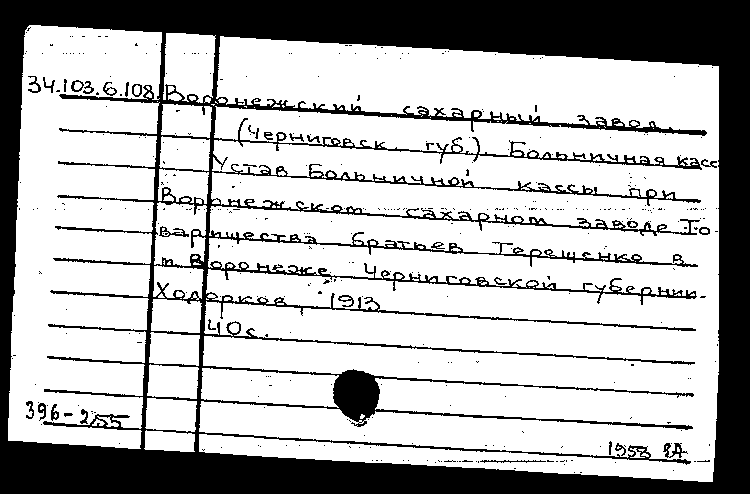 34.103.6.108. Воронежский сахарный завод.
(Черниговск. губ.). Больничная касс
Устав Больничной кассы при
Воронежском сахарном заводе То-
варищества братьев Терещенко в
м. Воронеже Черниговской губернии.
Ходорков, 1913
40с.
396-2/55
1958